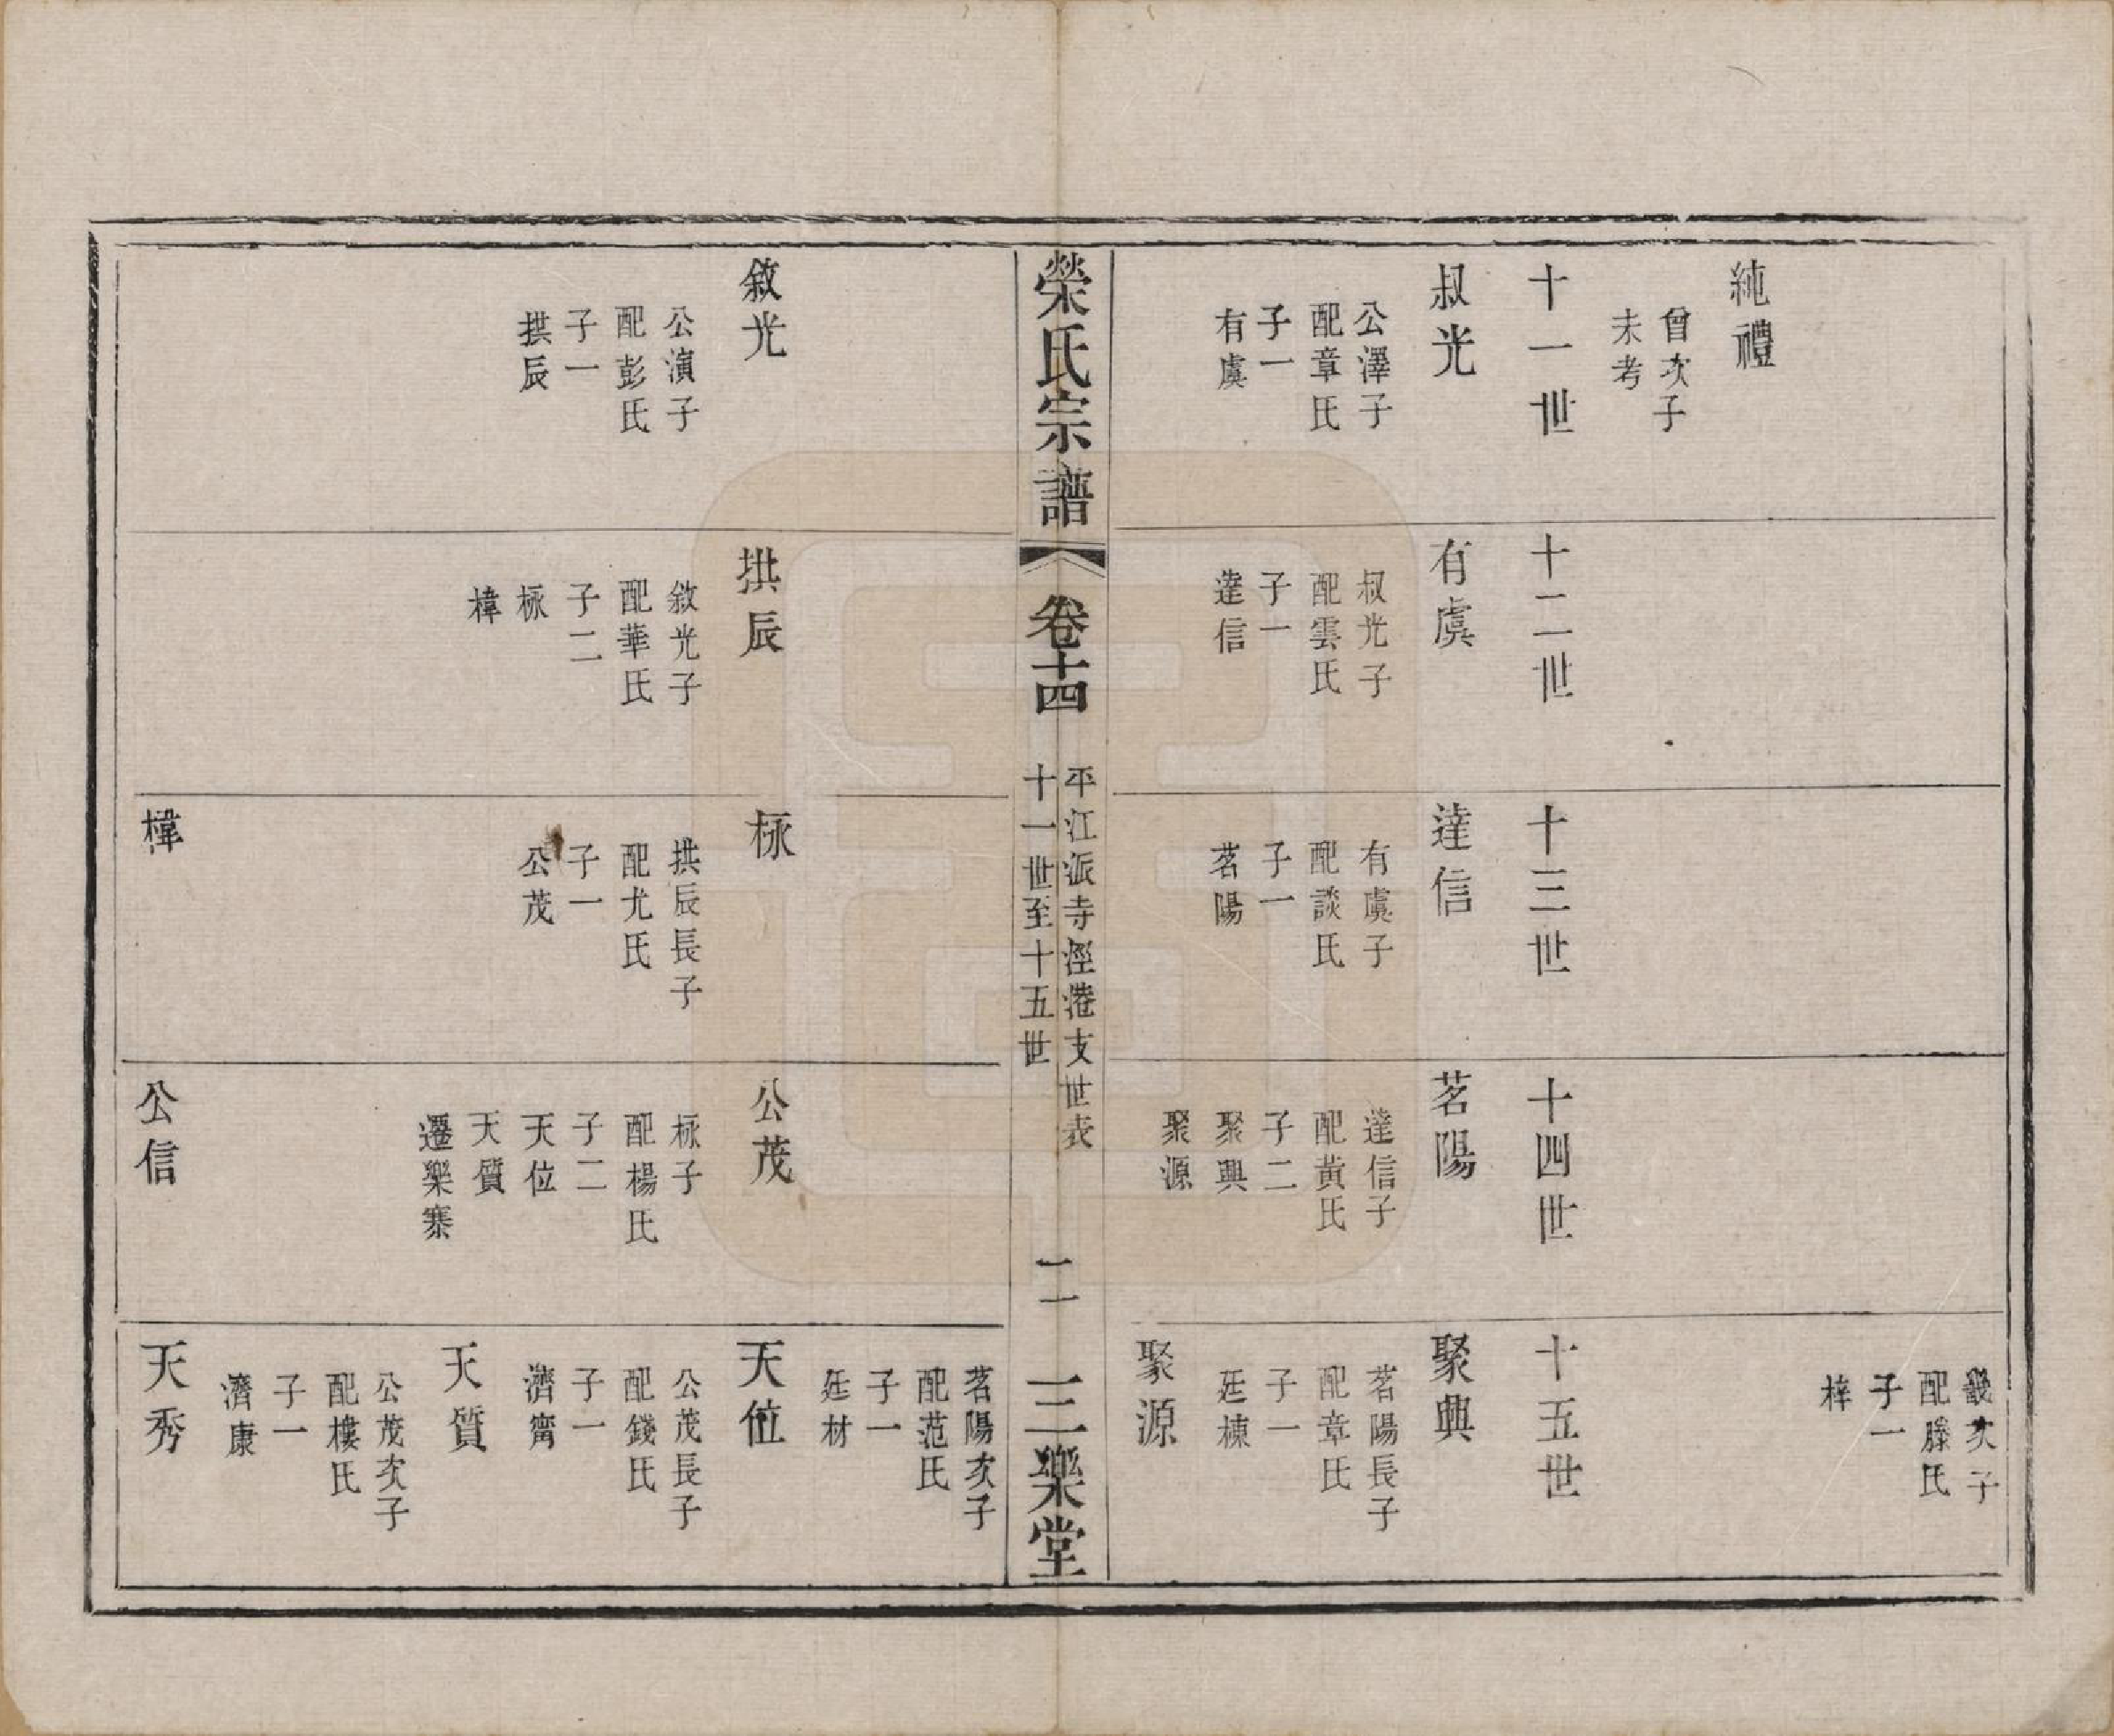 純禮
曾次子
未考
畿次子
配滕氏
子一
梓
十一世
叔光
公澤子
配章氏
子一
有虞
十二世
有虞
叔光子
配雲氏
子一
達信
十三世
達信
有虞子
配談氏
子一
茗陽
十四世
茗陽
達信子
配黃氏
子二
聚興
聚源
十五世
聚興
茗陽長子
配章氏
子一
廷棟
聚源
榮氏宗譜
卷十四
平江派寺涇港支世表
十一世至十五世
二
三樂堂
茗陽次子
配范氏
子一
廷材
敘光
公演子
配彭氏
子一
拱辰
拱辰
敘光子
配華氏
子二
柡
樟
柡
拱辰長子
配尤氏
子一
公茂
公茂
柡子
配楊氏
子二
天位
天質
遷樂寨
天位
公茂長子
配錢氏
子一
濟甯
天質
公茂次子
配樓氏
子一
濟康
公信
天秀